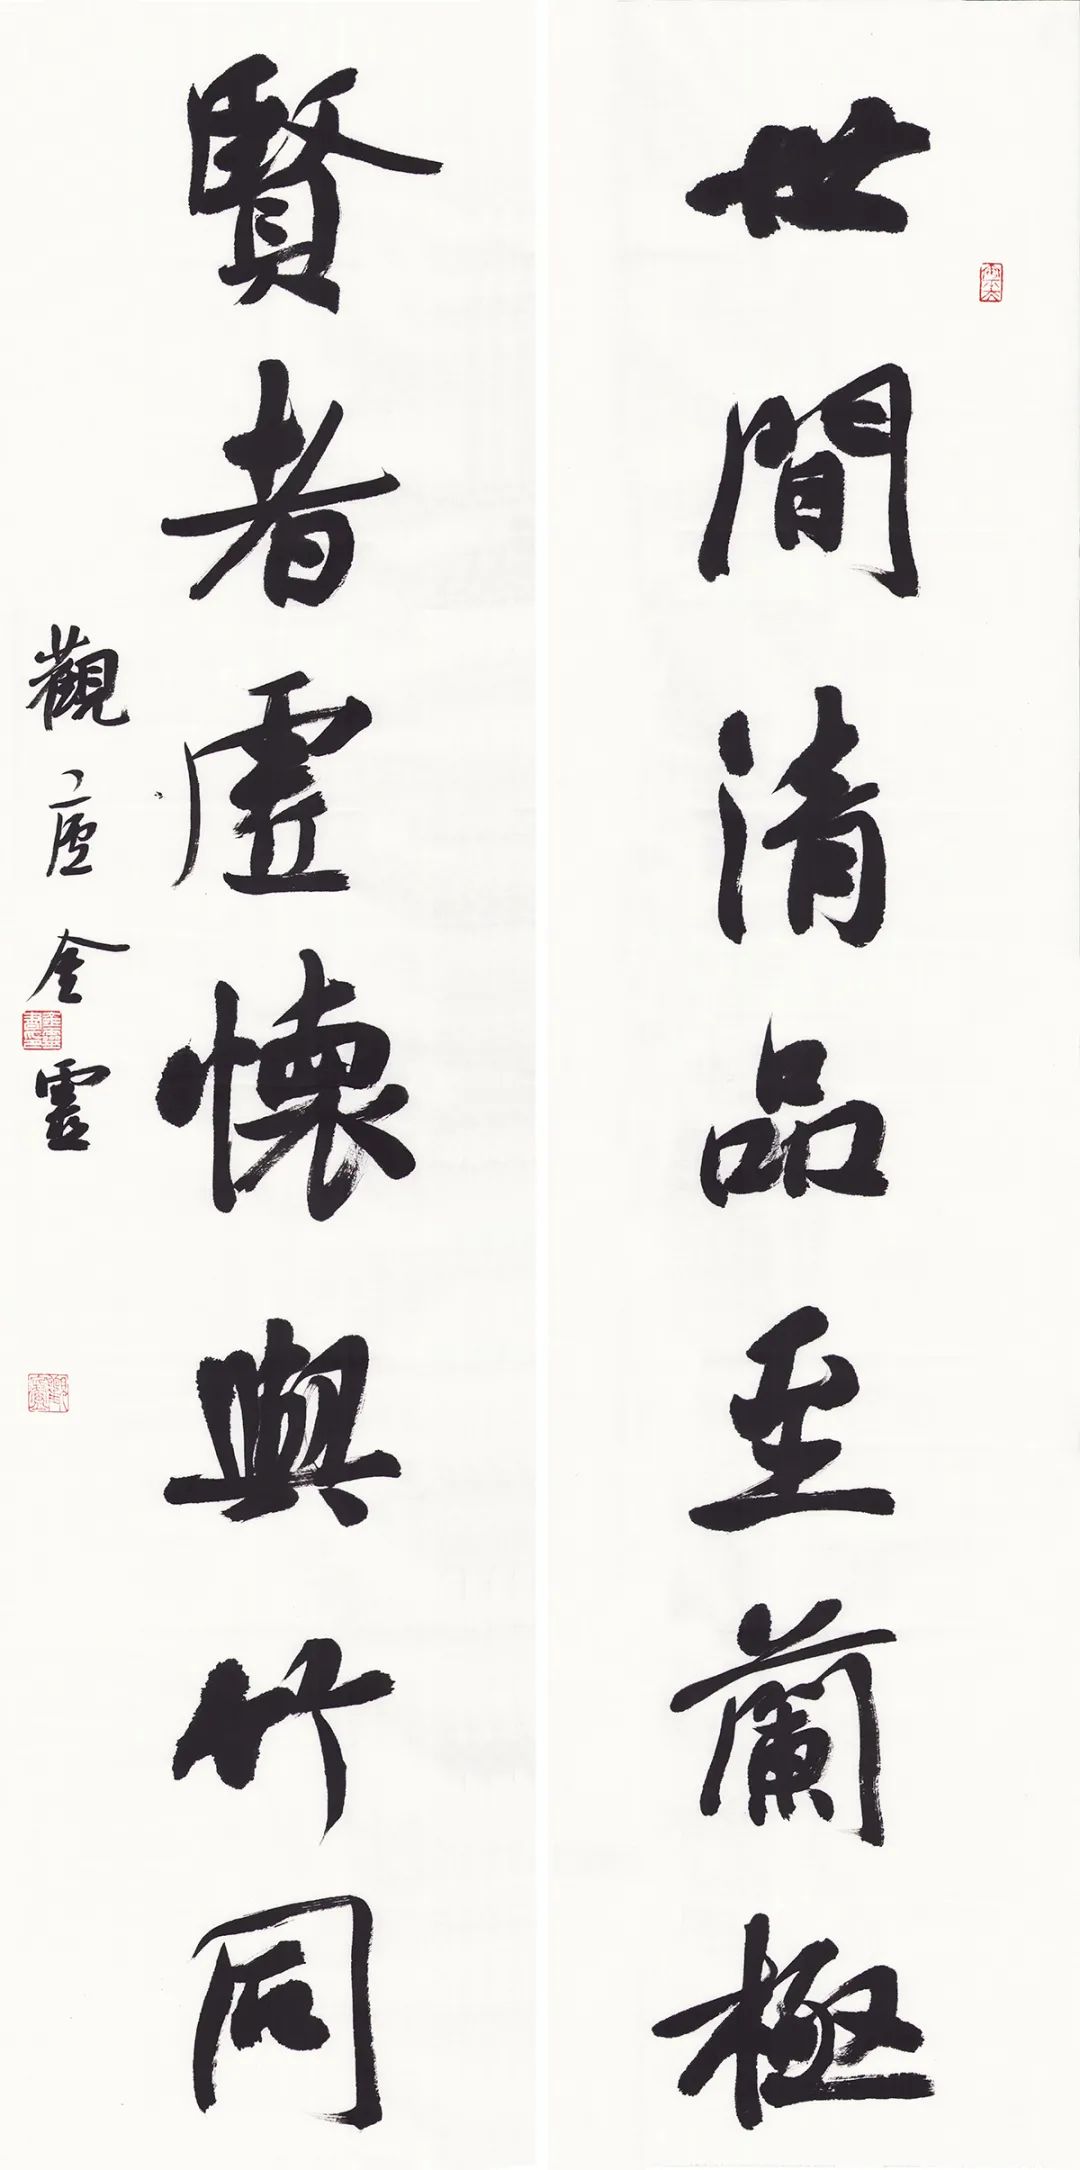 世間清品至蘭極
賢者虛懷與竹同
觀廬金靈